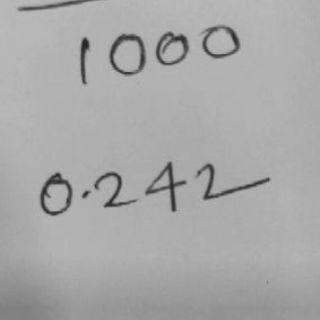 1000
0.242